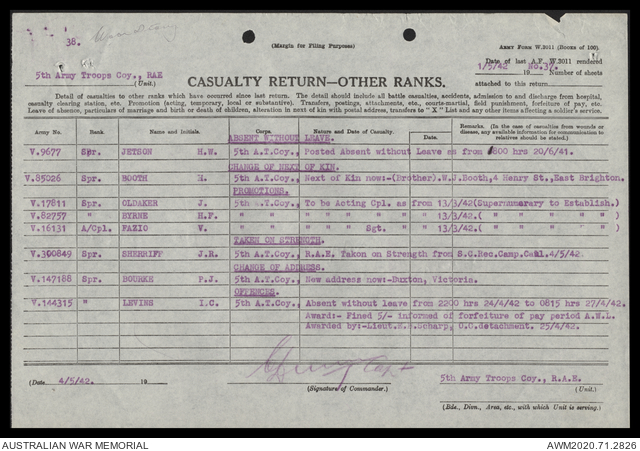 38.
(Margin for Filing Purposes)
ARMY FORM W.3011 (Books of 100).
Date of last A.F. W.3011 rendered
1/5/42 19
Number of sheets
attached to this return
5th Army Troops Coy., RAE
(Unit.)
CASUALTY RETURN—OTHER RANKS.
Detail of casualties to other ranks which have occurred since last return. The detail should include all battle casualties, accidents, admission to and discharge from hospital,
casualty clearing station, etc. Promotion (acting, temporary, local or substantive). Transfers, postings, attachments, etc., courts-martial, field punishment, forfeiture of pay, etc.
Leave of absence, particulars of marriage and birth or death of children, alteration in next of kin with postal address, transfers to "X" List and any other items affecting a soldier's service.
Army No. Rank. Name and Initials. Corps. Nature and Date of Casualty. Date. Remarks. (In the case of casualties from wounds or disease, any available information for communication to relatives should be stated.)
ABSENT WITHOUT LEAVE.
V.9677 Spr. JETSON H.W. 5th A.T.Coy., Posted Absent without Leave as from 1800 hrs 20/6/41.
CHANGE OF NEXT OF KIN.
V.85026 Spr. BOOTH 5th A.T.Coy., Next of Kin now:-(Brother).W.J.Booth,4 Henry St.,East Brighton.
PROMOTIONS.
V.17811 Spr. OLDAKER J. 5th A.T.Coy., To be Acting Cpl. as from 13/3/42(Supernumarary to Establish.)
V.82757 " BYRNE H.F. " " " " " " 13/3/42.( " " " )
V.16131 A/Cpl. FAZIO V. " " " " Sgt. " 13/3/42.( " " " )
TAKEN ON STRENGTH.
V.300849 Spr. SHERRIFF J.R. 5th A.T.Coy., R.A.E. Taken on Strength from S.C.Rec.Camp.Caul.4/5/42.
CHANGE OF ADDRESS.
V.147188 Spr. BOURKE P.J. 5th A.T.Coy., New address now:-Buxton, Victoria.
OFFENCES.
V.144315 " LEVINS I.C. 5th A.T.Coy., Absent without leave from 2200 hrs 24/4/42 to 0815 hrs 27/4/42.
Award:- Fined 5/- informed of forfeiture of pay period A.W.L.
Awarded by:-Lieut. Scharp, O.C.detachment. 25/4/42.
Capt
(Date. 4/5/42. 19
(Signature of Commander.)
5th Army Troops Coy., R.A.E.
(Unit.)
(Bde., Divn., Area, etc., with which Unit is serving.)
AUSTRALIAN WAR MEMORIAL
AWM2020.71.2826